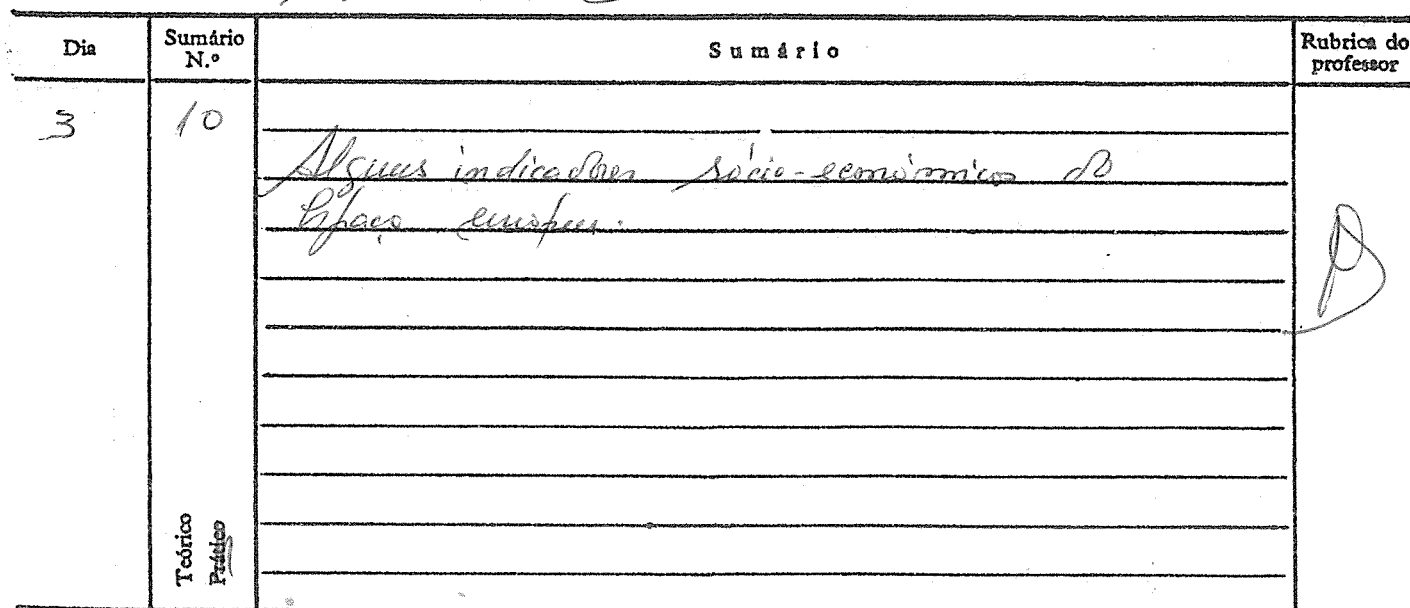 Dia
Sumário N.º
Sumário
Rubrica do professor
3
10
Alguns indicadores sócio-económicos do
Espaço europeu.
Teórico
Prático